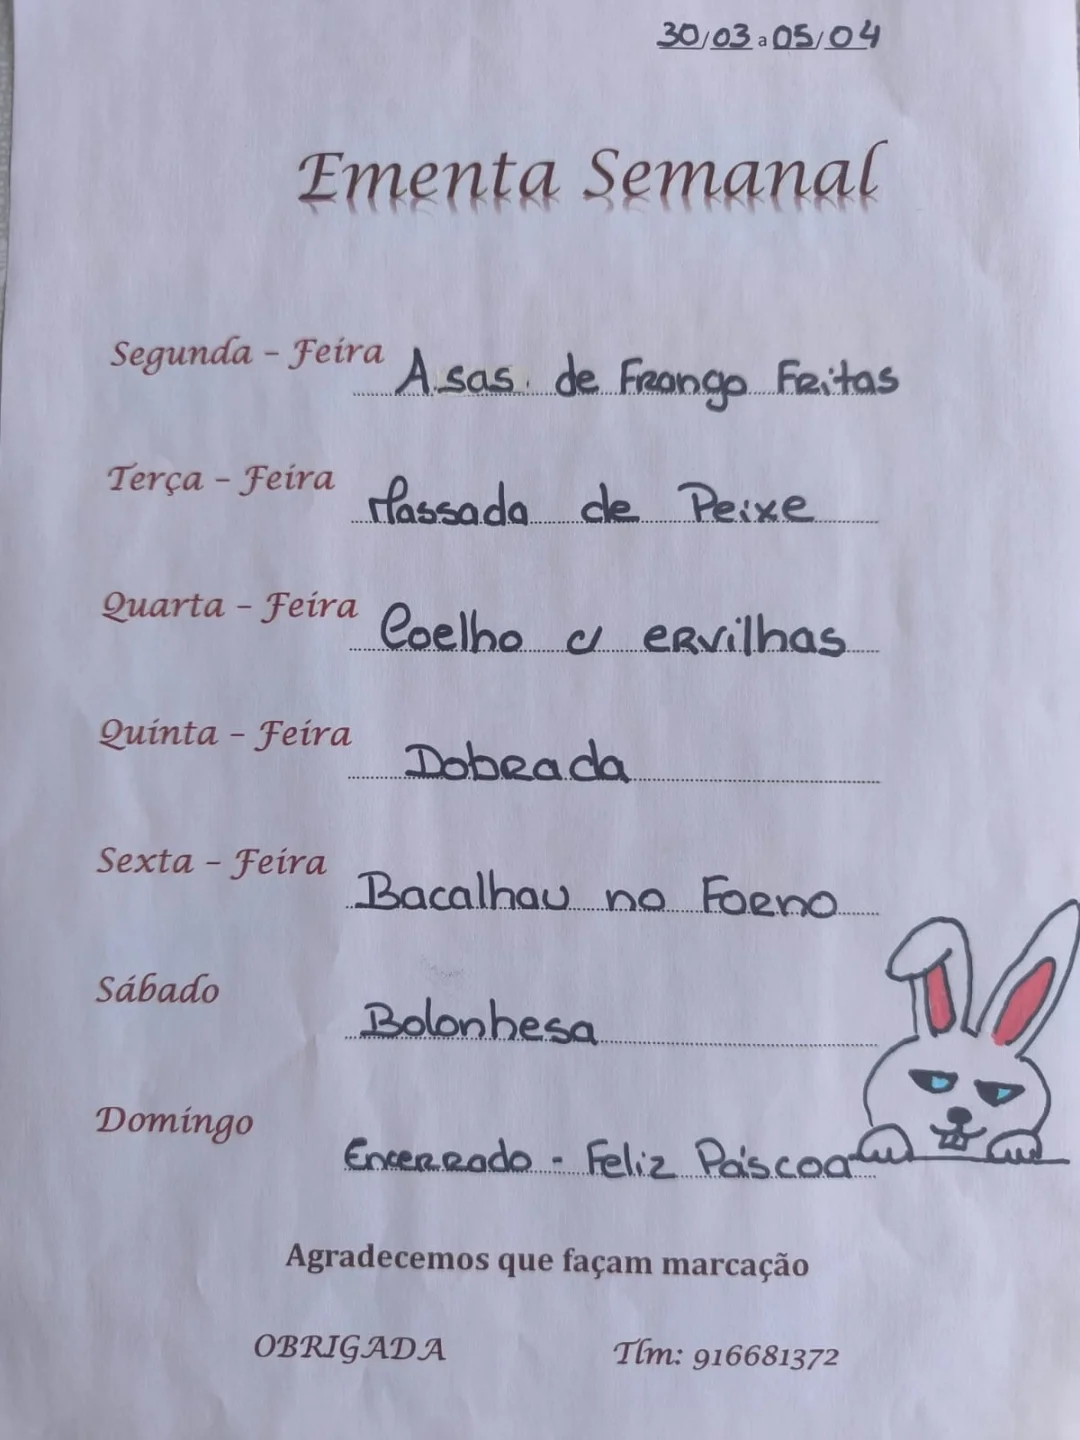 30/03 a 05/04
Ementa Semanal
Segunda - Feira Asas de Frango Fritas
Terça - Feira Massada de Peixe
Quarta - Feira Coelho c/ ervilhas
Quinta - Feira Dobrada
Sexta - Feira Bacalhau no Forno
Sábado Bolonhesa
Domingo Encerrado - Feliz Páscoa
Agradecemos que façam marcação
OBRIGADA Tlm: 916681372